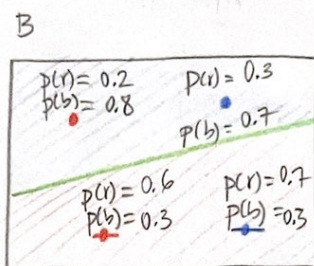 B
p(r) = 0.2
p(b) = 0.8
p(r) = 0.3
p(b) = 0.7
p(r) = 0.6
p(b) = 0.3
p(r) = 0.7
p(b) = 0.3